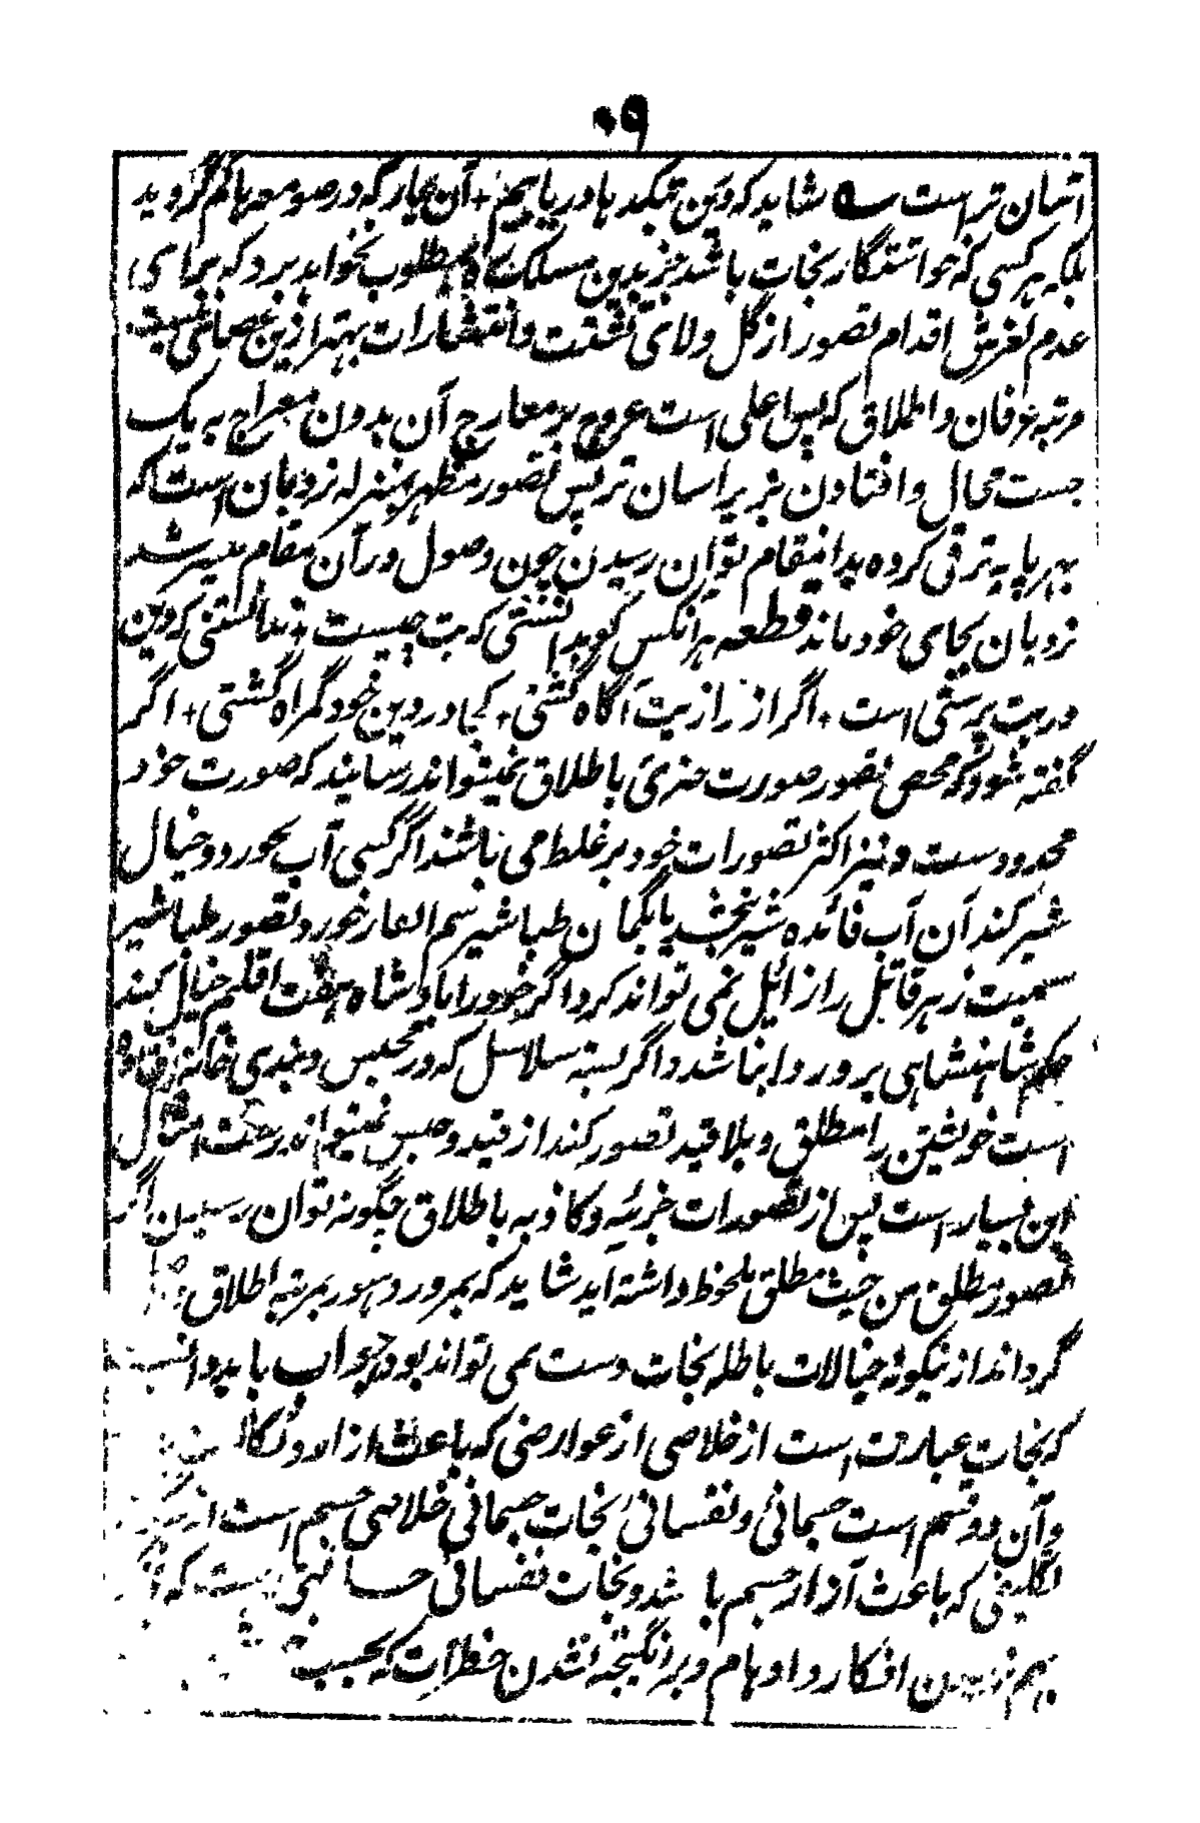 ۰۹
آسان تر است ــه شاید که درین بتکدها دریابیم + آن یار که در صومعها گم گردید
بلکه هر کسی که خواستگار نجات باشد جز بدین مسلک راه بمطلوب نخواهد برد که برای
عدم لغزش اقدام تصور از گل ولای تشتت وانتشارات بهتر ازین عصائی نیست
مرتبه عرفان واطلاق که بس اعلی است عروج بر معارج آن بدون معراج به یک
جست محال وافتادن بزیر آسان تر پس تصور مظهر بمنزله نردبان است که
بهر پایه ترقی کرده بدانمقام توان رسیدن چون وصول در آن مقام میسر شد
نردبان بجای خود ماند قطعه هر آنکس کو بدانستی که بت چیست + بدانستی که دین
در بت پرستی است + اگر از راز بت آگاه گشتی + کجا در دین خود گمراه گشتی + اگر
گفته شود که محض تصور صورت جزئ باطلاق نمیتواند رسانید که صورت خود
محدود ست ونیز اکثر تصورات خود بر غلط می باشند اگر کسی آب بخورد وخیال
شیر کند آن آب فائده شیر نبخشد یا بگمان طباشیر سم الفار خورد تصور طباشیر
سمیت زهر قاتل را زائل نمی تواند کرد واگر خود را پادشاه هفت اقلیم خیال کند
حکم شاهنشاهی بر ور دا نباشد واگر بسته سلاسل که در محبس وبندی خانه
است خویشتن را مطلق وبلا قید تصور کند از قید وحبس نمیتواند رست امثال
این بسیار است پس از تصورات جزئیه وکاذبه باطلاق چگونه توان رسیدن اگر
تصور مطلق من حیث مطلق ملحوظ داشته آید شاید که بمرور دهور بمرتبه اطلاق
گرداند از نیگونه خیالات باطله نجات دست نمی تواند بود جواب باید دانست
که نجات عبارت است از خلاصی از عوارضی که باعث آزار و
وآن دو قسم است جسمانی ونفسانی نجات جسمانی خلاصی جسم است از
تکلیفی که باعث آزار جسم باشد ونجات نفسانی که
بهم افکار واوهام وبرانگیخته نشدن خطرات که بحسب